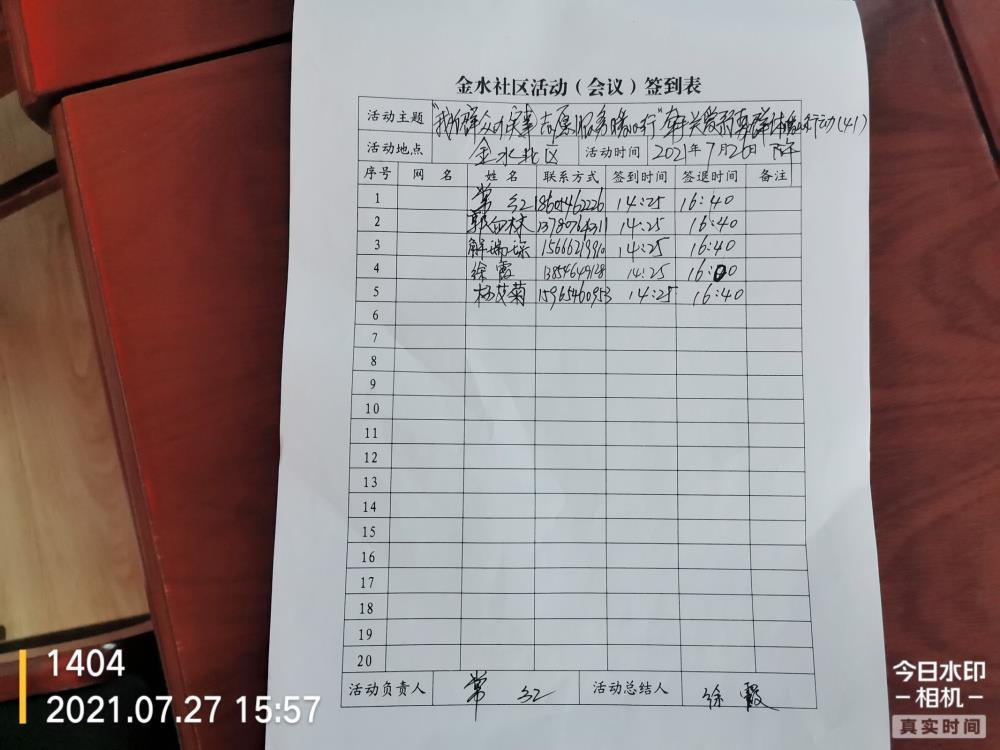 金水社区活动（会议）签到表
活动主题 "我为群众办实事志愿服务 行" 关爱 群体 行动(41)
活动地点 金水北区 活动时间 2021年7月26日 下午
序号 网 名 姓 名 联系方式 签到时间 签退时间 备注
1 常 红 18605462226 14:25 16:40
2 14:25 16:40
3 解瑞琼 14:25 16:40
4 徐霞 14:25
5 杨艾菊 15965460953 14:25 16:40
6
7
8
9
10
11
12
13
14
15
16
17
18
19
20
活动负责人 常 红 活动总结人 徐 霞
1404
2021.07.27 15:57
今日水印
-相机-
真实时间